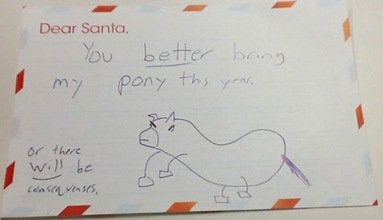 Dear Santa,
You better bring
my pony ths year.
or there
will be
consequenses.